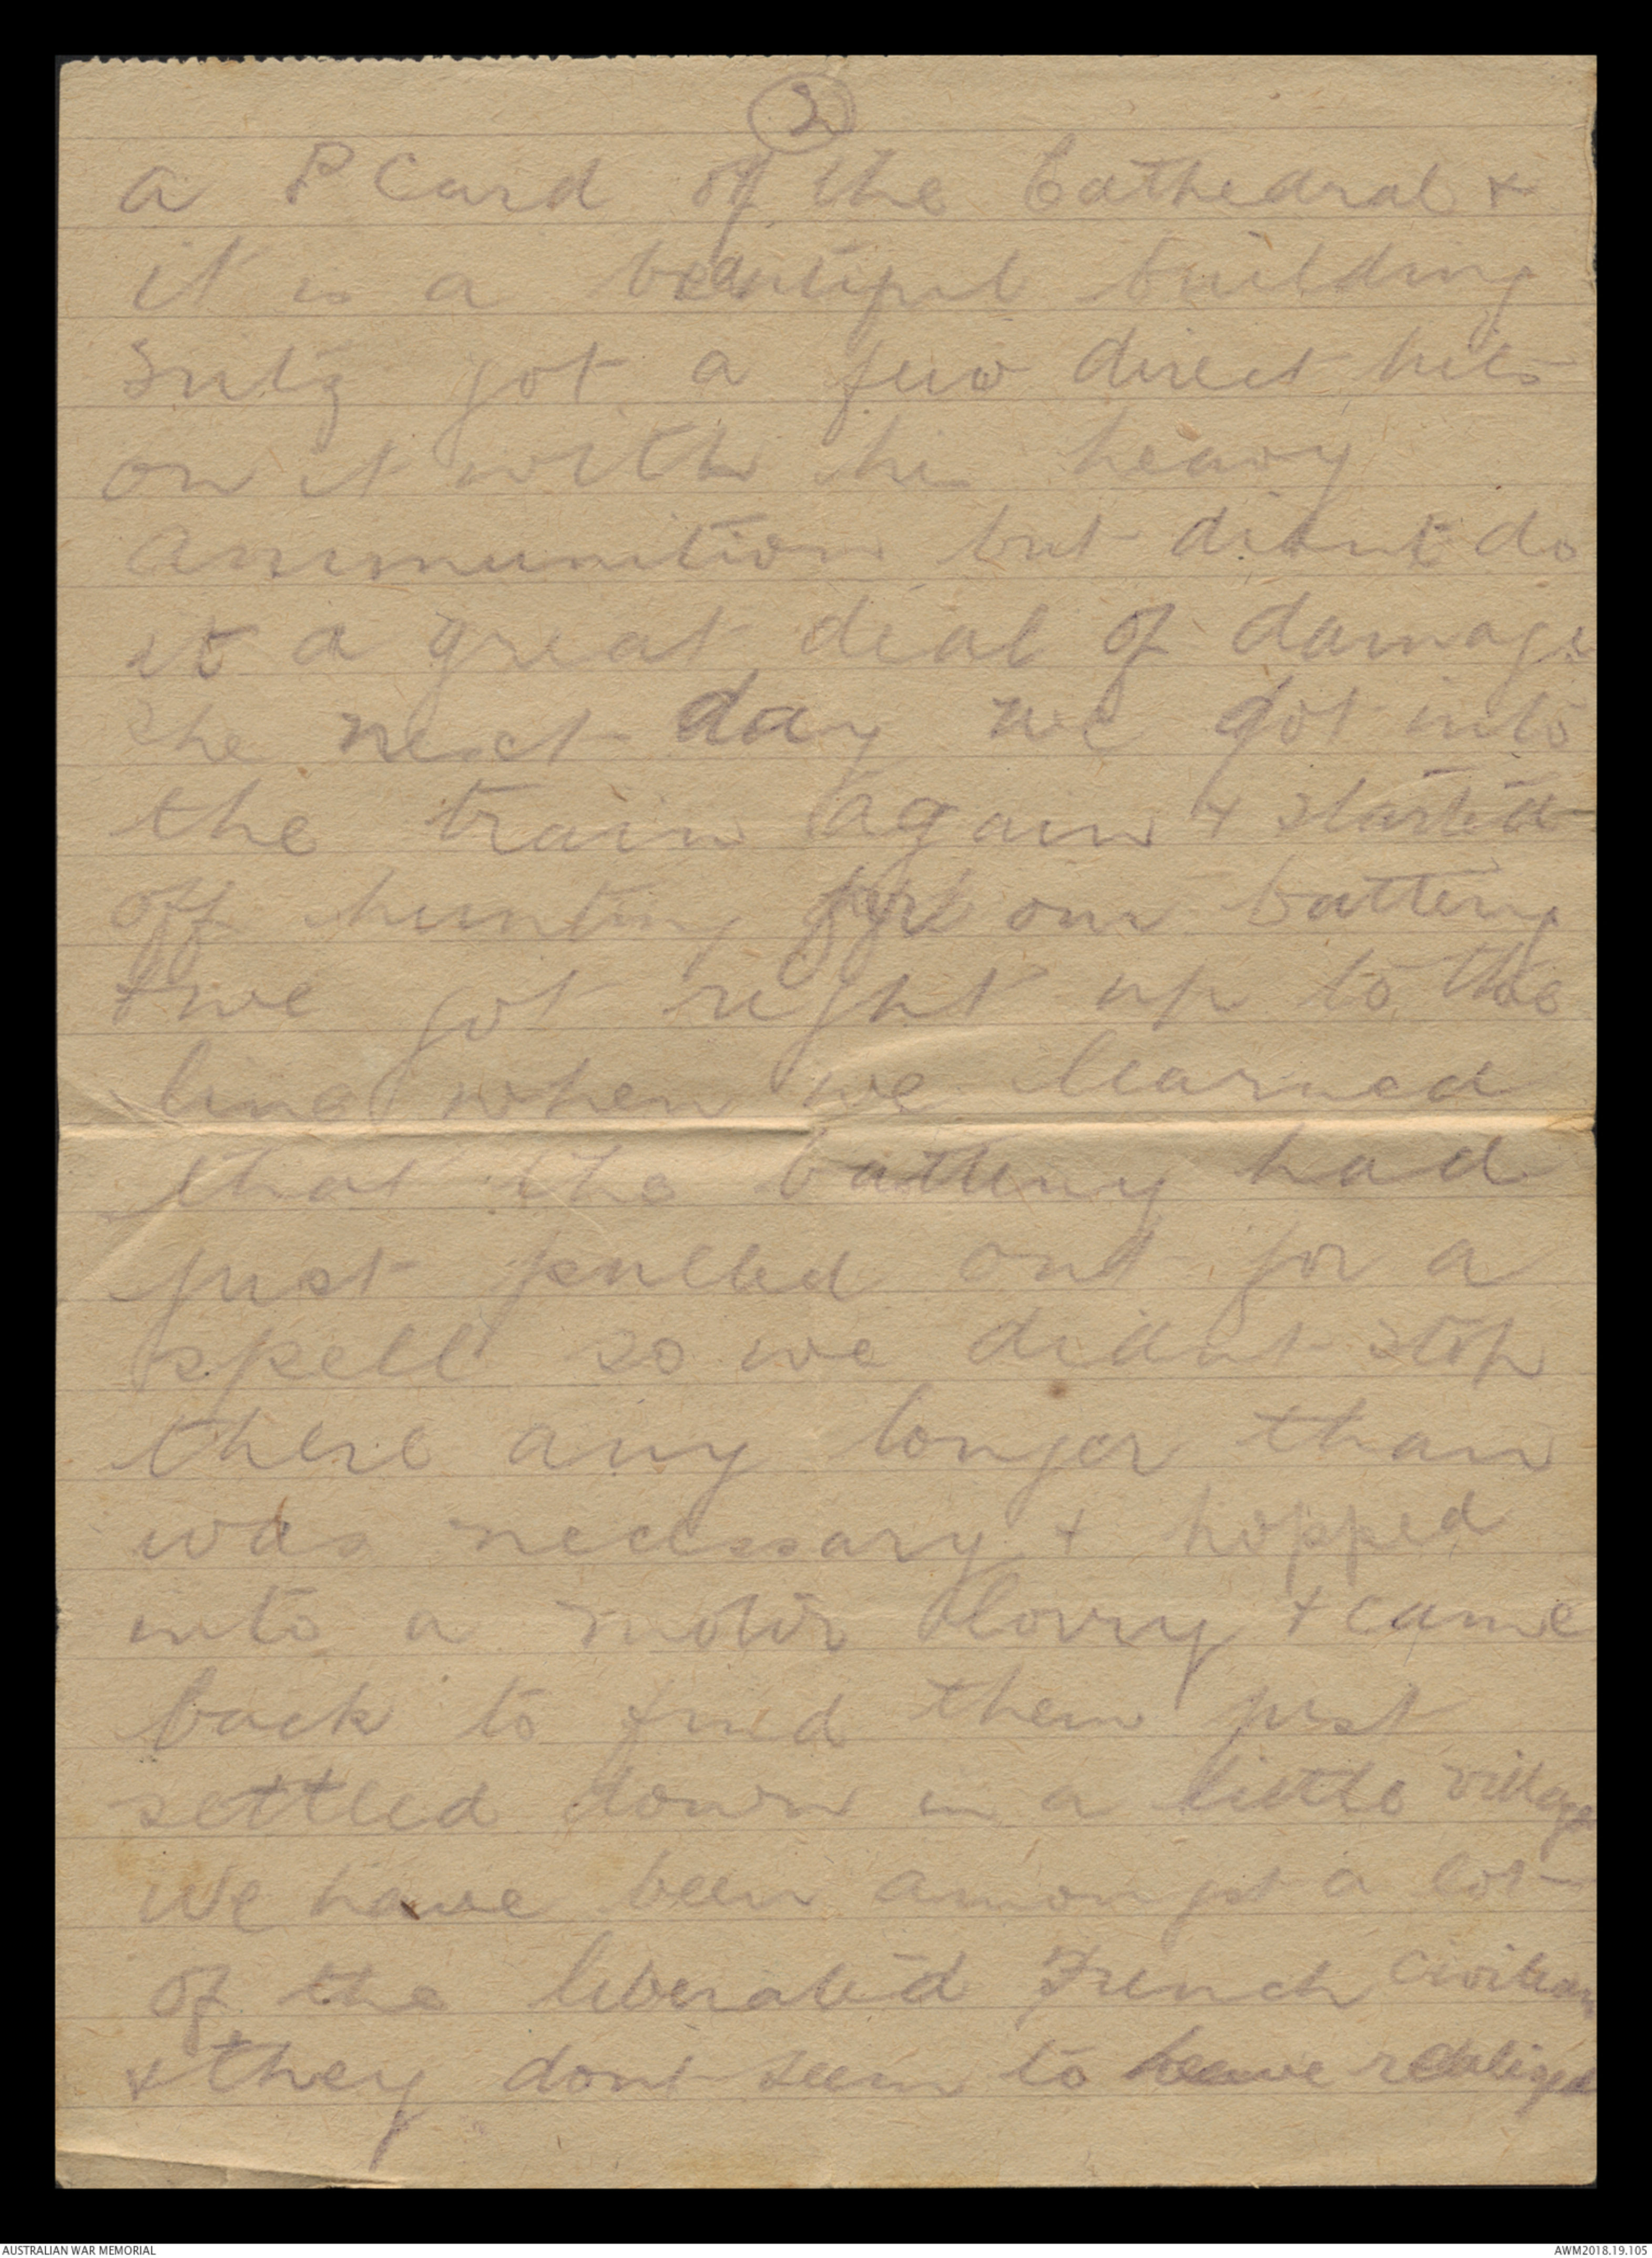 2
a P Card of the Cathedral &
it is a beautiful building
Fritz got a few direct hits
on it with his heavy
ammunition but didnt do
it a great deal of damage
The next day we got into
the train again & started
off hunting for our battery
& we got right up to the
line when we learned
that the battery had
just pulled out for a
spell so we didnt stop
there any longer than
was necessary & hopped
into a motor lorry & came
back to find them just
settled down in a little village
We have been amongst a lot
of the liberated French civilians
& they dont seem to have realized
AUSTRALIAN WAR MEMORIAL
AWM2018.19.105